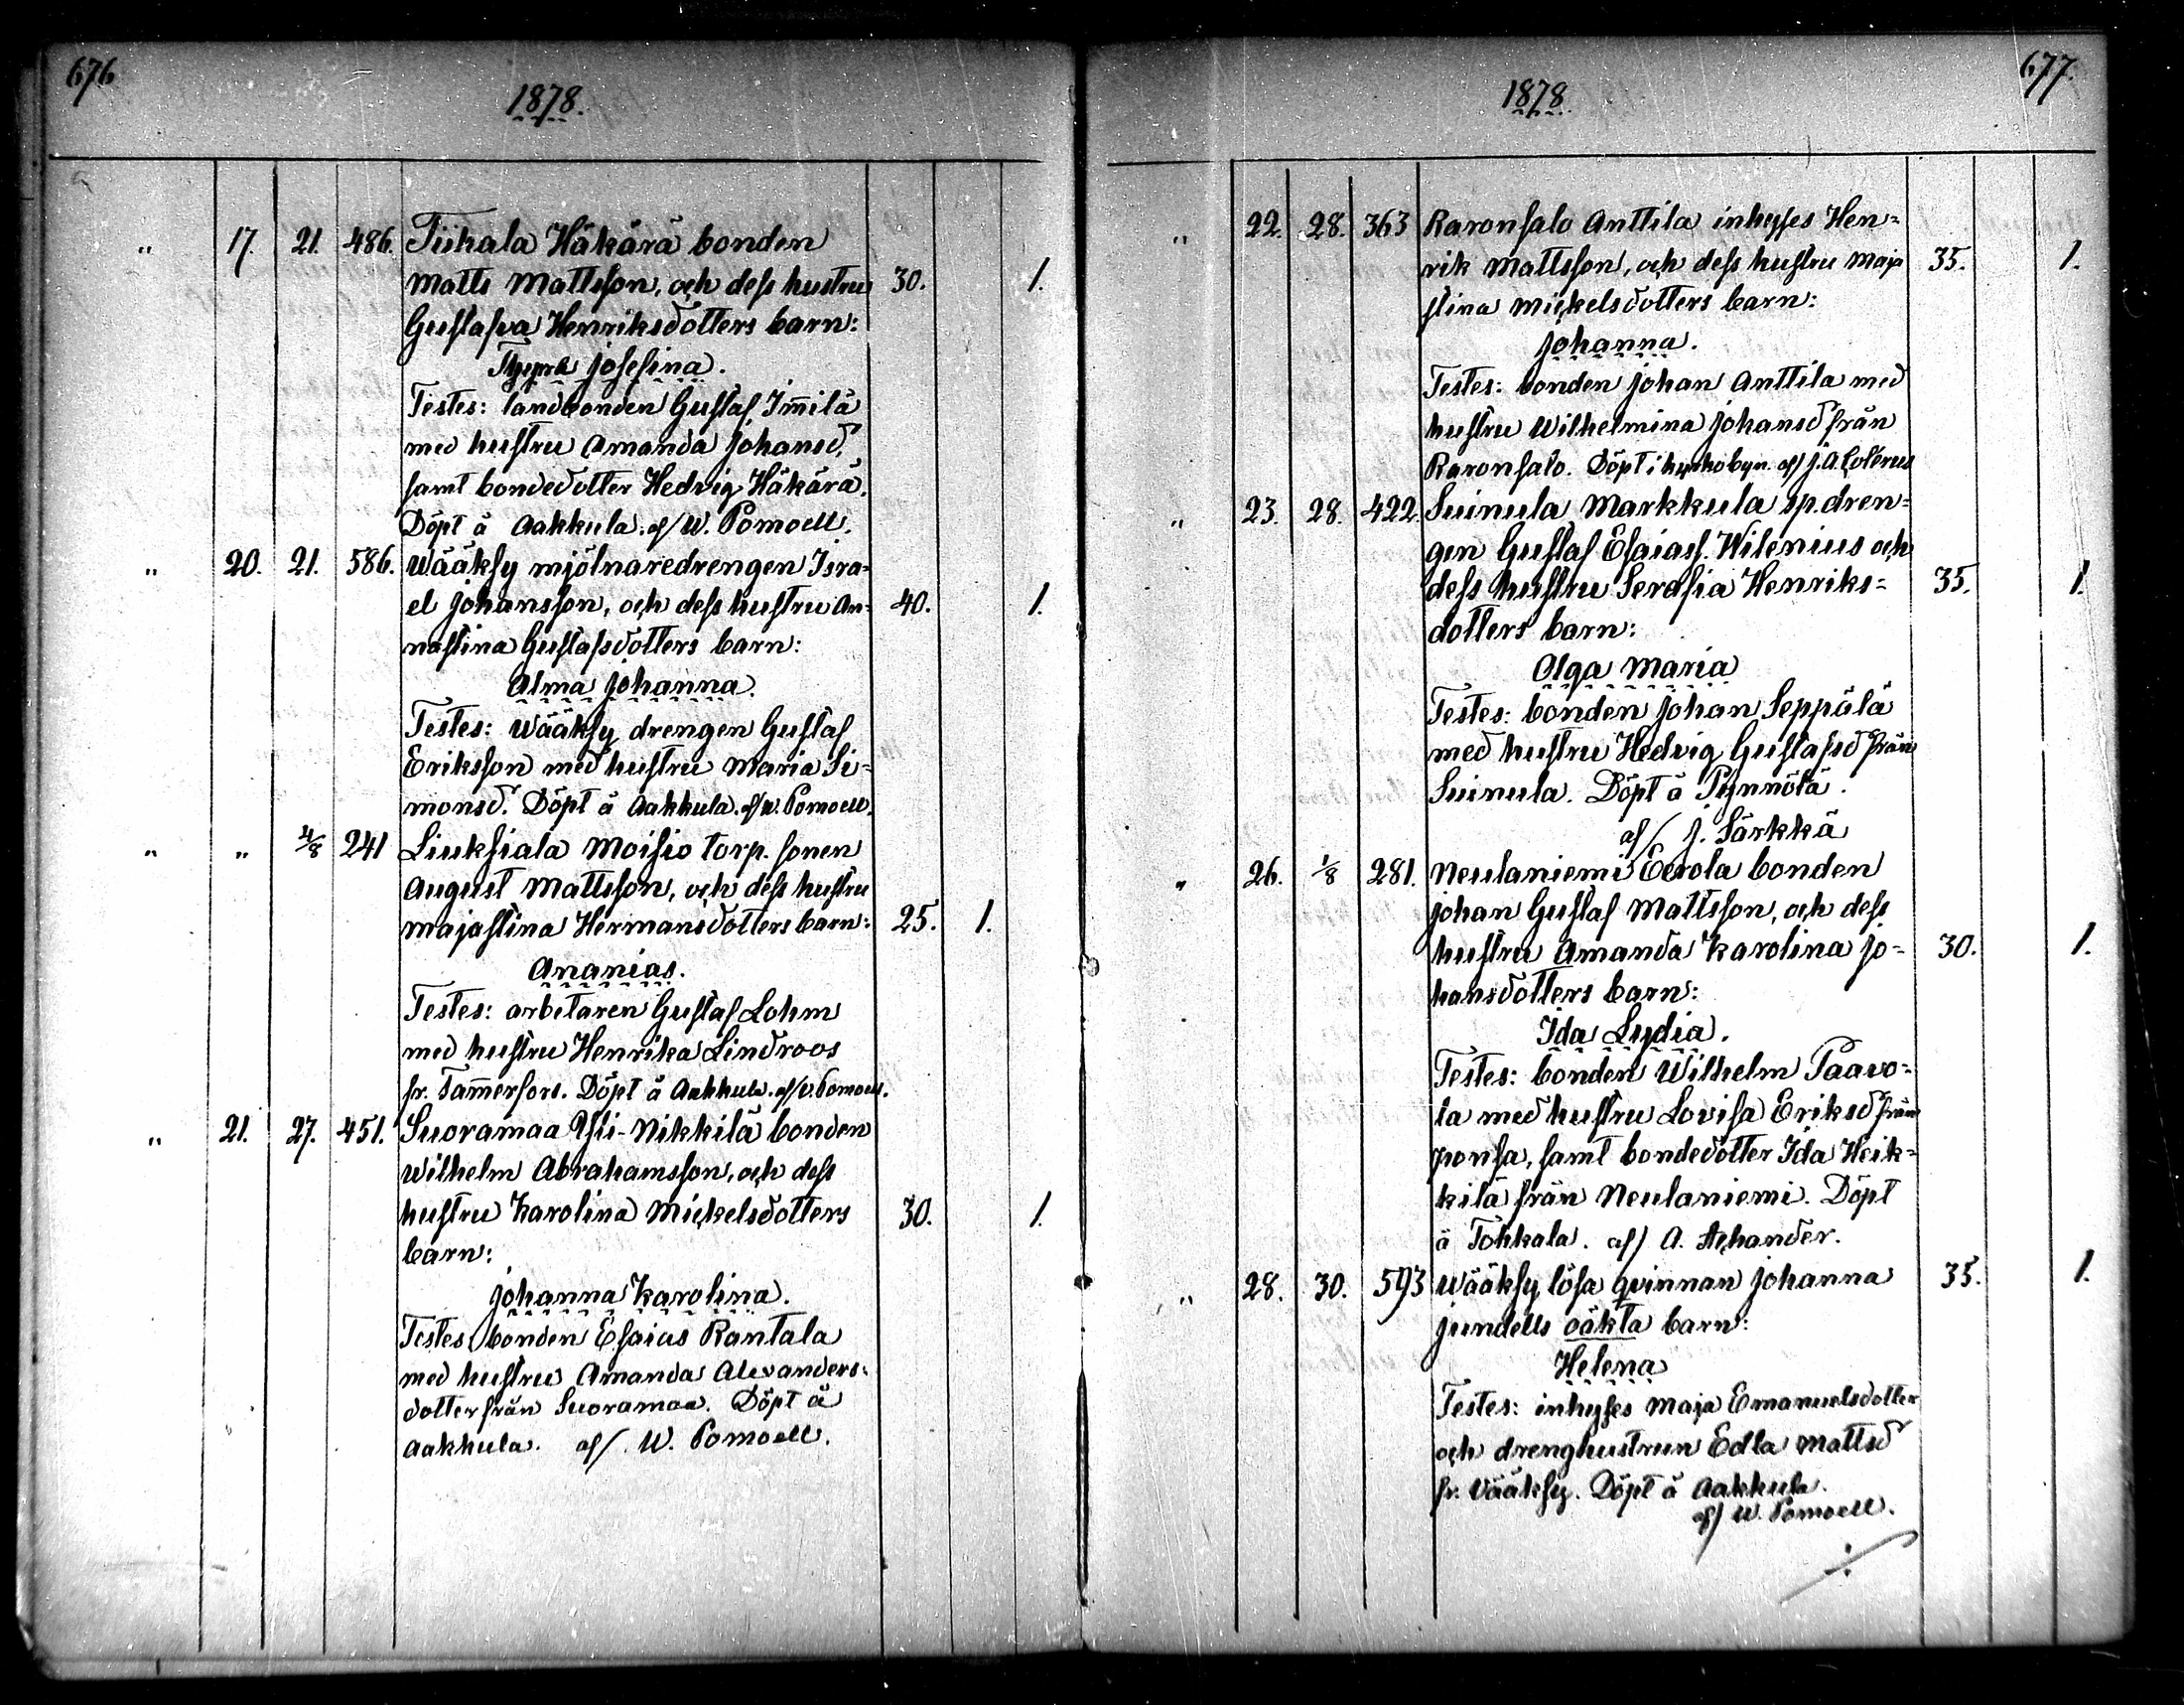 676
1878.
" 17. 21. 486. Tiihala Häkärä bonden
Matts Mattsson, och dess hustru 30. 1.
Gustafva Henriksdotters barn:
Josefina.
Testes: landbonden Gustaf Im̄ilä
med hustru Amanda Johansd,
samt bondedotter Hedvig Häkärä.
Döpt å Aakkula. af/ W. Pomoell.
" 20. 21. 586. Wääksy mjölnaredrengen Isra-
el Johansson, och dess hustru An- 40. 1.
nastina Gustafsdotters barn:
Alma Johanna.
Testes: Wääksy drengen Gustaf
Eriksson med hustru Maria Si-
monsd. Döpt å Aakkula. af/ W. Pomoell.
" " 4/8 241 Liuksiala Moisio torp. sonen
August Mattsson, och dess hustru
Majastina Hermansdotters barn: 25. 1.
Ananias.
Testes: arbetaren Gustaf Lohm
med hustru Henrika Lindroos
fr. Tam̄erfors. Döpt å Aakkula. af/ W. Pomoell.
" 21. 27. 451. Suoramaa Yli-Nikkilä bonden
Wilhelm Abrahamsson, och dess
hustru Karolina Mickelsdotters 30. 1.
barn:
Johanna Karolina.
Testes bonden Esaias Rantala
med hustru Amanda Alexanders-
dotter från Suoramaa. Döpt å
Aakkula. af/. W. Pomoell.
677.
1878.
" 22. 28. 363 Raronsalo Anttila inhyses Hen-
rik Mattsson, och dess hustru Maja 35. 1.
stina Mickelsdotters barn:
Johanna.
Testes: bonden Johan Anttila med
hustru Wilhelmina Johansd från
Raronsalo. Döpt i kyrkobyn. af/ J. A. Colerus
" 23. 28. 422. Suinula Markkula sp. dren-
gen Gustaf Esaiass. Wilenius och
dess hustru Serafia Henriks- 35. 1.
dotters barn:
Olga Maria
Testes: bonden Johan Seppälä
med hustru Hedvig Gustafsd från
Suinula. Döpt å Pynnölä.
af/ J. Särkkä
" 26. 1/8 281. Neulaniemi Eerola bonden
Johan Gustaf Mattsson, och dess
hustru Amanda Karolina Jo- 30. 1.
hansdotters barn:
Ida Lydia.
Testes: bonden Wilhelm Paavo-
la med hustru Lovisa Eriksd från
Ponsa, samt bondedotter Ida Heik-
kilä från Neulaniemi. Döpt
å Tohkala. af/ A. Achander.
" 28. 30. 593 Wääksy lösa qvinnan Johanna 35. 1.
Jundells oäkta barn:
Helena
Testes: inhyses Maja Emanuelsdotter
och drenghustrun Edla Mattsd
fr. Wääksy. Döpt å Aakkula.
af/ W. Pomoell.